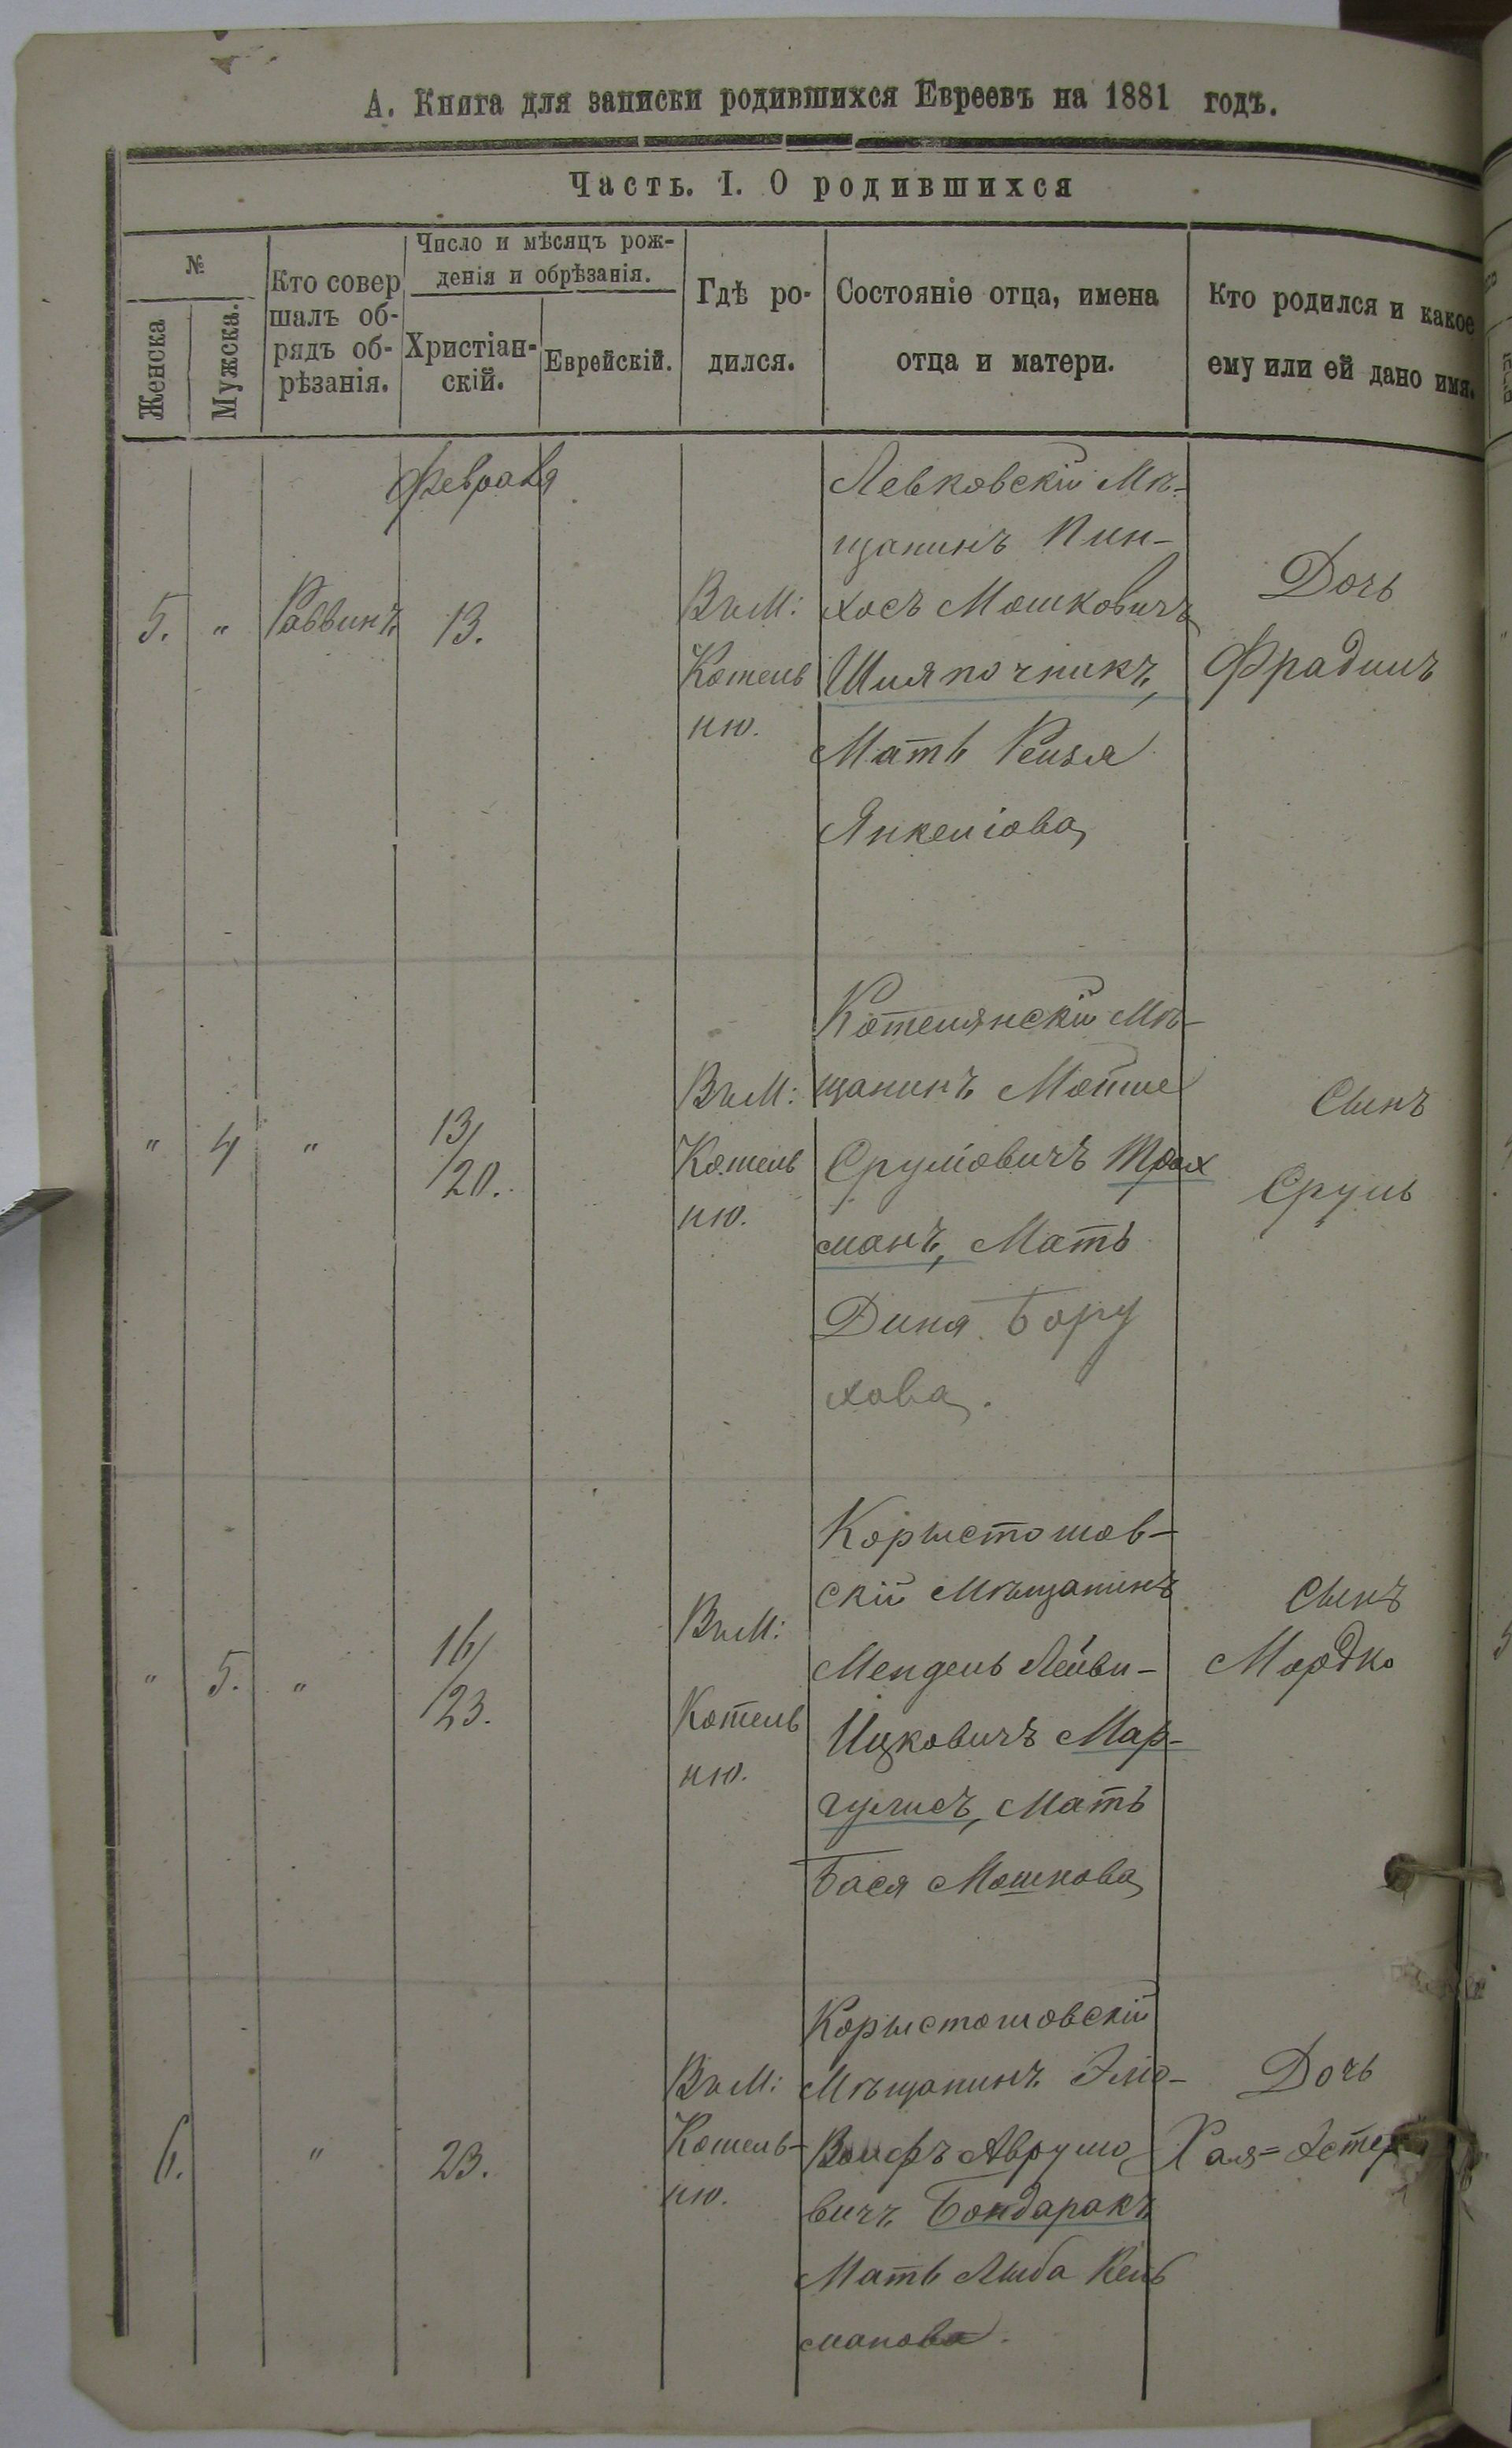 А. Книга для записки родившихся Евреевъ на 1881 годъ.
Часть. I. О родившихся
№
Женска
Мужска.
Кто совер
шалъ об-
рядъ об-
рѣзанія.
Число и мѣсяцъ рож-
денія и обрѣзанія.
Христіан-
скій.
Еврейскій.
Гдѣ ро-
дился.
Состояніе отца, имена
отца и матери.
Кто родился и какое
ему или ей дано имя.
Февраля
5.
"
Раввинъ
13.
Въ М:
Котель
ню.
Левковскій Мѣ-
щанинъ Пин-
хосъ Мошковичъ
Шляпочникъ,
Мать Рейзя
Янкеліова
Дочь
Фрадиль
"
4
"
13/
/20.
Въ М:
Котель
ню.
Котелянскій Мѣ-
щанинъ Мойше
Сруліовичъ Трах
манъ, Мать
Диня Бору
хова.
Сынъ
Сруль
"
5.
"
16/
/23.
Въ М:
Котель
ню.
Корыстошов-
скій Мѣщанинъ
Мендель Лейви-
Ицковичъ Мар-
гулисъ, Мать
Бася Мошкова
Сынъ
Мордко
6.
"
23.
Въ М:
Котель-
ню.
Корыстошовскій
Мѣщанинъ Эліо-
Вольфъ Аврумо
вичъ Бондаракъ
Мать Лыба Кель
манова.
Дочь
Хая=Эстер